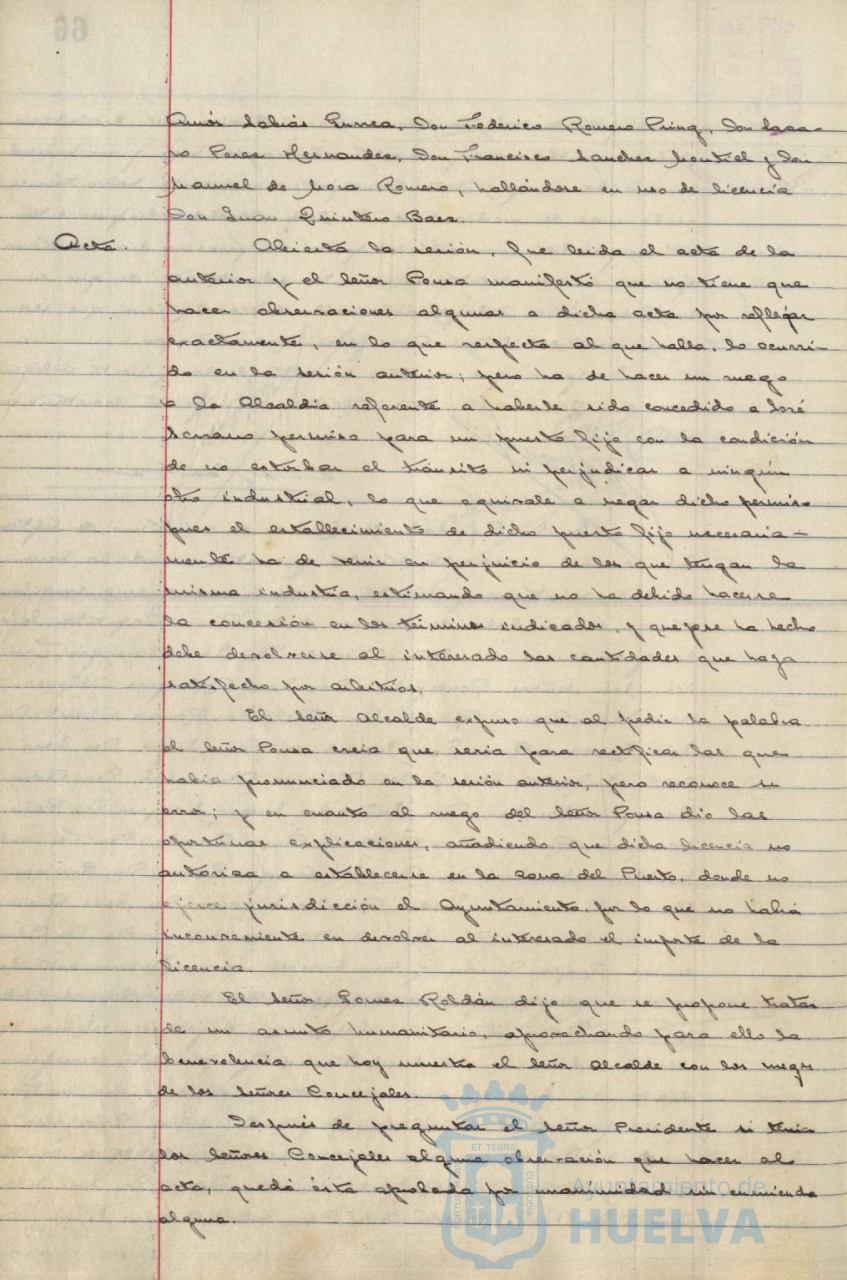 Amós Sabrás Gurrea, Don Federico Romero Pring, Don Lázaro
ro Pérez Hernandez, Don Francisco Sanchez Montiel y Don
Manuel de Mora Romero, hallándose en uso de licencia
Don Juan Quintero Baez.
Acta.
Abierta la sesión, fue leida el acta de la
anterior y el Señor Ponsa manifestó que no tiene que
hacer observaciones algunas a dicha acta por reflejar
exactamente, en lo que respecta al que habla, lo ocurri-
do en la sesión anterior; pero ha de hacer un ruego
a la Alcaldía referente a haberle sido concedido a José
Serrano permiso para un puesto fijo con la condición
de no estorbar el tránsito ni perjudicar a ningún
otro industrial, lo que equivale a negar dicho permiso
pues el establecimiento de dicho puesto fijo necesaria-
mente ha de venir en perjuicio de los que tengan la
misma industria, estimando que no ha debido hacerse
la concesión en los términos indicados, y que pues ha hecho
debe devolverse al interesado las cantidades que haya
satisfecho por arbitrios.
El Señor Alcalde expuso que al pedir la palabra
el Señor Ponsa creia que seria para rectificar las que
habia pronunciado en la sesión anterior, pero reconoce su
error; y en cuanto al ruego del Señor Ponsa dio las
oportunas explicaciones, añadiendo que dicha licencia no
autoriza a establecerse en la zona del Puerto, donde no
ejerce jurisdicción el Ayuntamiento, por lo que no habrá
inconveniente en devolver al interesado el importe de la
licencia.
El Señor Gomez Roldán dijo que se propone tratar
de un asunto humanitario, aprovechando para ello la
benevolencia que hoy muestra el Señor Alcalde con los ruegos
de los Señores Concejales.
Después de preguntar el Señor Presidente si tenia
los Señores Concejales alguna observación que hacer al
acta, quedó ésta aprobada por unanimidad sin enmienda
alguna.
ET TERRA
Ayuntamiento de
HUELVA